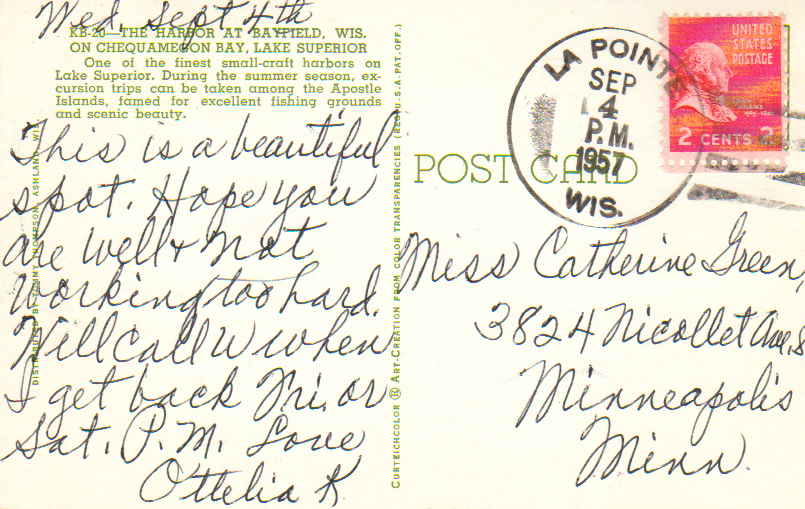 Wed, Sept 4th
KB-20—THE HARBOR AT BAYFIELD, WIS.
ON CHEQUAMEGON BAY, LAKE SUPERIOR
One of the finest small-craft harbors on
Lake Superior. During the summer season, ex-
cursion trips can be taken among the Apostle
Islands, famed for excellent fishing grounds
and scenic beauty.
This is a beautiful
spot. Hope you
are well & not
working too hard.
Will call U when
I get back Fri. or
Sat. P.M. Love
Ottelia K.
DISTRIBUTED BY THOMPSON, ASHLAND, WIS.
CURTEICHCOLOR ® ART-CREATION FROM COLOR TRANSPARENCIES (REG. U.S.A. PAT. OFF.)
POST CARD
LA POINTE
SEP
4
P.M.
1957
WIS.
UNITED
STATES
POSTAGE
2 CENTS 2
Miss Catherine Green,
3824 Nicollet Ave, S
Minneapolis
Minn.